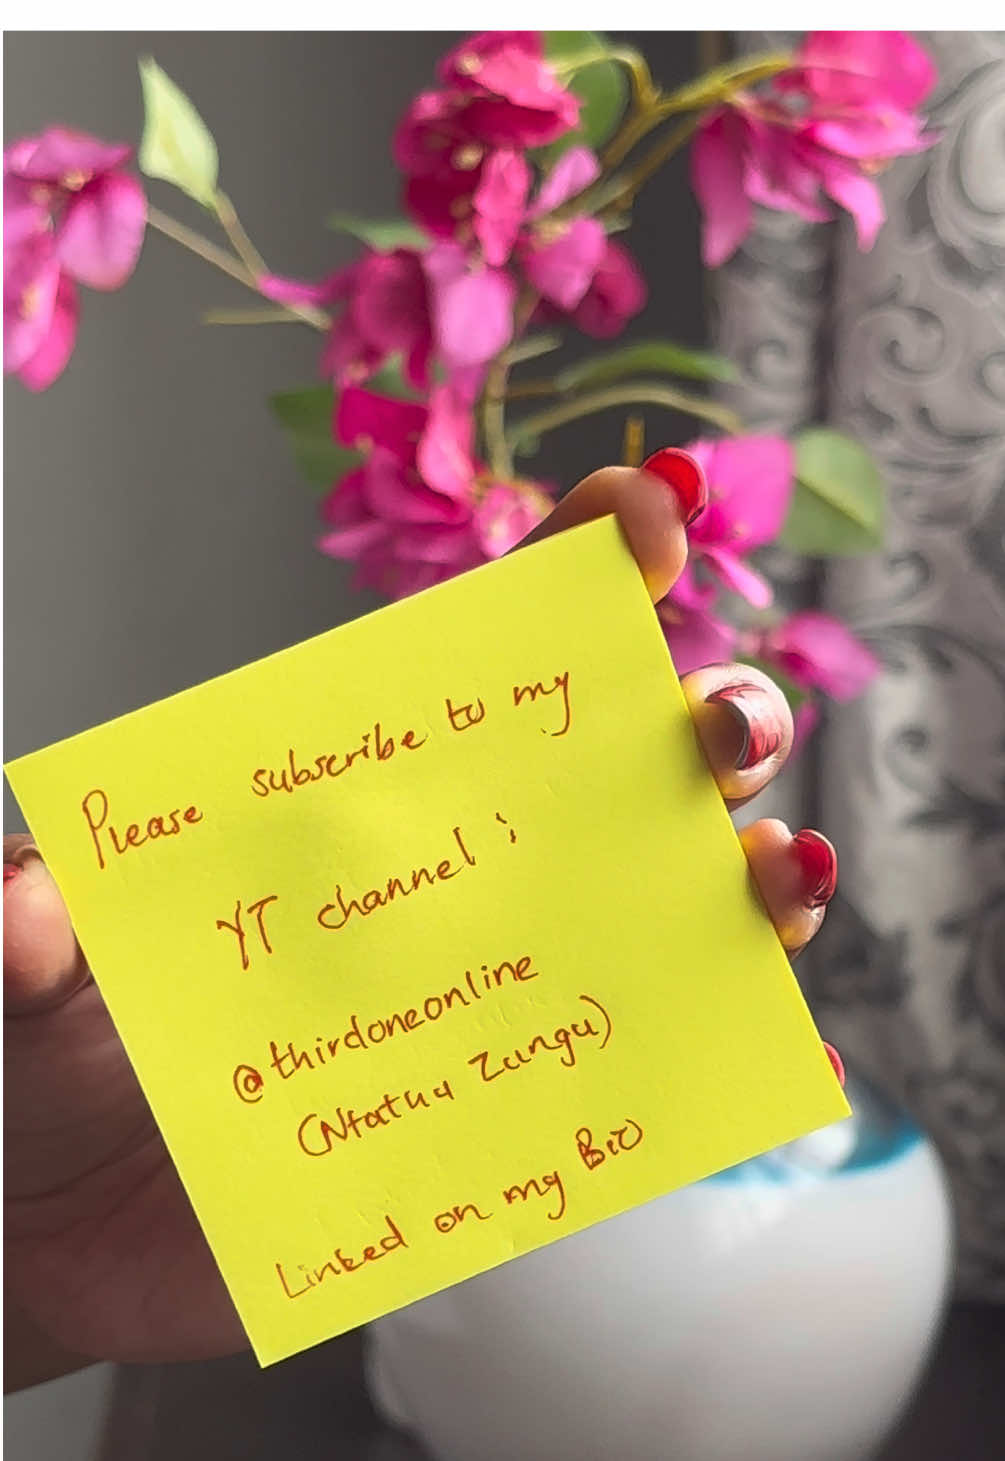 Please subscribe to my
YT channel :
@thirdoneonline
(Ntathu Zungu)
Linked on my Bio